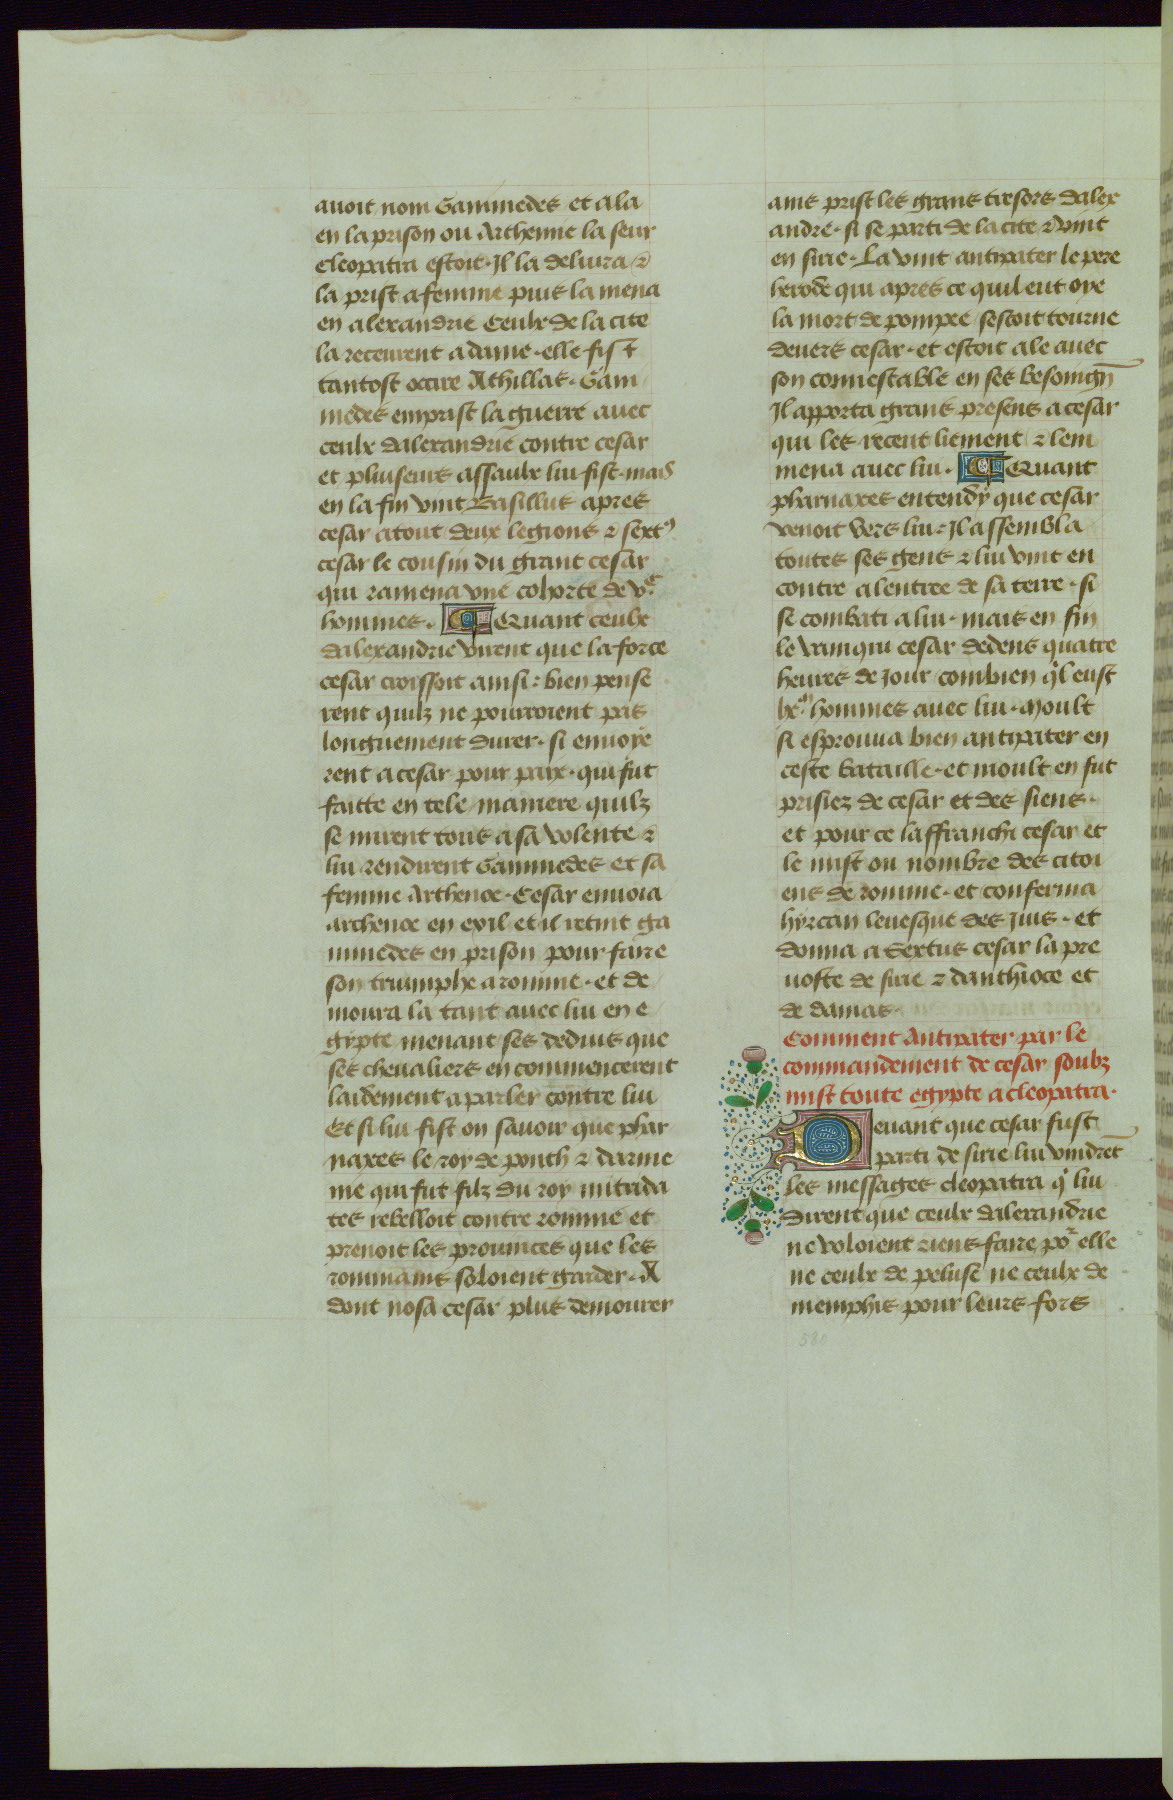 avoit nom Gammedes et ala
en la prison ou Archemie la seur
Cleopatra estoit. Il la delivra ⁊
la prist a femme puis la mena
en alexandrie Ceulx de la cite
la receurent a dame. elle fist
tantost occire Athillas. Gani
medes emprist la guerre avec
ceulx dalexandrie contre cesar
et pluiseurs assaulx lui fist. mais
en la fin vint Basillus apres
cesar atout deux legions ⁊ sextꝰ
cesar le cousin du grant cesar
qui ramena vne cohorte de v.ᶜ
hommes. Quant ceulx
dalexandrie virent que la force
cesar croissoit ainsi: bien pense
rent quilz ne pourroient pas
longuement durer. si enuoye
rent a cesar pour paix. qui fut
faitte en tele maniere quilz
se mirent tous a sa volente ⁊
lui rendirent Ganimedes et sa
femme Arthenoe. Cesar enuoia
archenoe en exil et il retint ga
nimedes en prison pour faire
son triumphe a romme. et de
moura la tant avec lui en e
gypte menant ses deduis que
ses cheualiers en commencerent
laidement a parler contre lui
Et si lui fist on sauoir que phar
naxes le roy de ponth ⁊ darme
nie qui fut filz du roy mitrida
tes rebelloit contre romme et
prenoit les prouinces que les
rommains soloient garder. A
dont nosa cesar plus demourer
ains prist les grans tresors dalex
andre. si se parti de la cite ⁊ vint
en sirie. La vint antipater le pere
herode qui apres ce quil eut oye
la mort de pompee sestoit tourne
deuers cesar. et estoit ale auec
son connestable en ses besoingn̄
Il apporta grans presens a cesar
qui les receut liement ⁊ lem
mena auec lui. Quant
pharnaxes entendy que cesar
venoit vers lui: Il assembla
toutes ses gens ⁊ lui vint en
contre a lentree de sa terre. si
se combati a lui. mais en fin
le vainqui cesar dedens quatre
heures de jour combien q̉l eust
hommes avec lui. Moult
si esprouua bien antipater en
ceste bataille. et moult en fut
prisiez de cesar et des siens.
et pour ce laffranchi cesar et
le mist ou nombre des citoi
ens de romme. et conferma
hyrcan leuesque des juis. et
donna a Sextus cesar la pre
uoste de sirie ⁊ danthioce et
de damas.
Comment Antipater par le
commandement de cesar soubz
mist toute egypte a cleopatra.
Deuant que cesar fust
parti de sirie lui vindrēt
les messages cleopatra q̉ lui
dirent que ceulx dalexandrie
ne voloient riens faire poʳ elle
ne ceulx de peluse ne ceulx de
memphis pour leurs fors
580